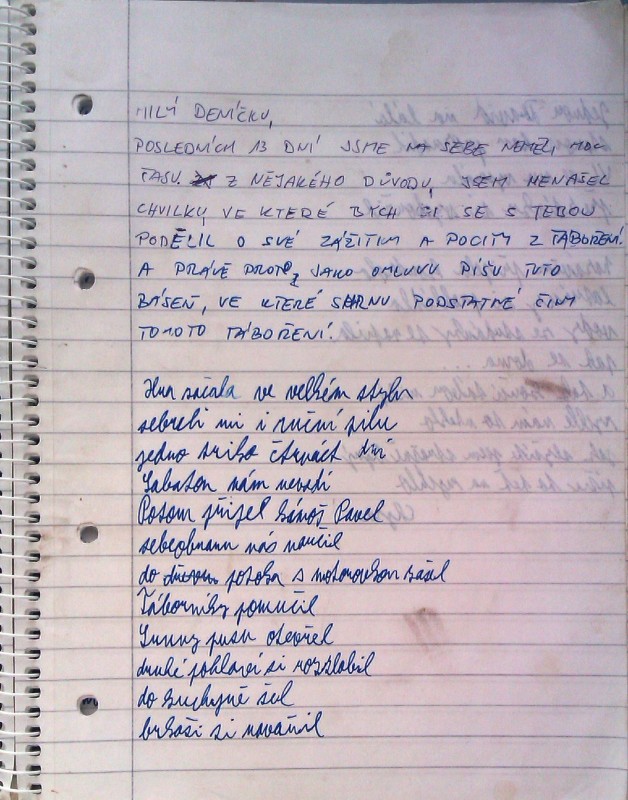 MILÝ DENÍČKU,
POSLEDNÍCH 13 DNÍ JSME NA SEBE NEMĚLI MOC
ČASU. Z NĚJAKÉHO DŮVODU, JSEM NENAŠEL
CHVILKU, VE KTERÉ BYCH SI SE S TEBOU
PODĚLIL O SVÉ ZÁŽITKY A POCITY Z TÁBOŘENÍ.
A PRÁVĚ PROTO, JAKO OMLUVU PÍŠU TUTO
BÁSEŇ, VE KTERÉ SHRNU PODSTATNÉ ČINY
TOHOTO TÁBOŘENÍ.
Hra začala ve velkém stylu
sebrali mi i ruční pilu
jedno triko čtrnáct dní
Sabaton nám nevadí
Potom přijel Pavel
sebeobranu nás naučil
do potoka s
Táborníky pomučil
Sunny pusu otevřel
druhé pohlaví si rozzlobil
do kuchyně šel
si navařil